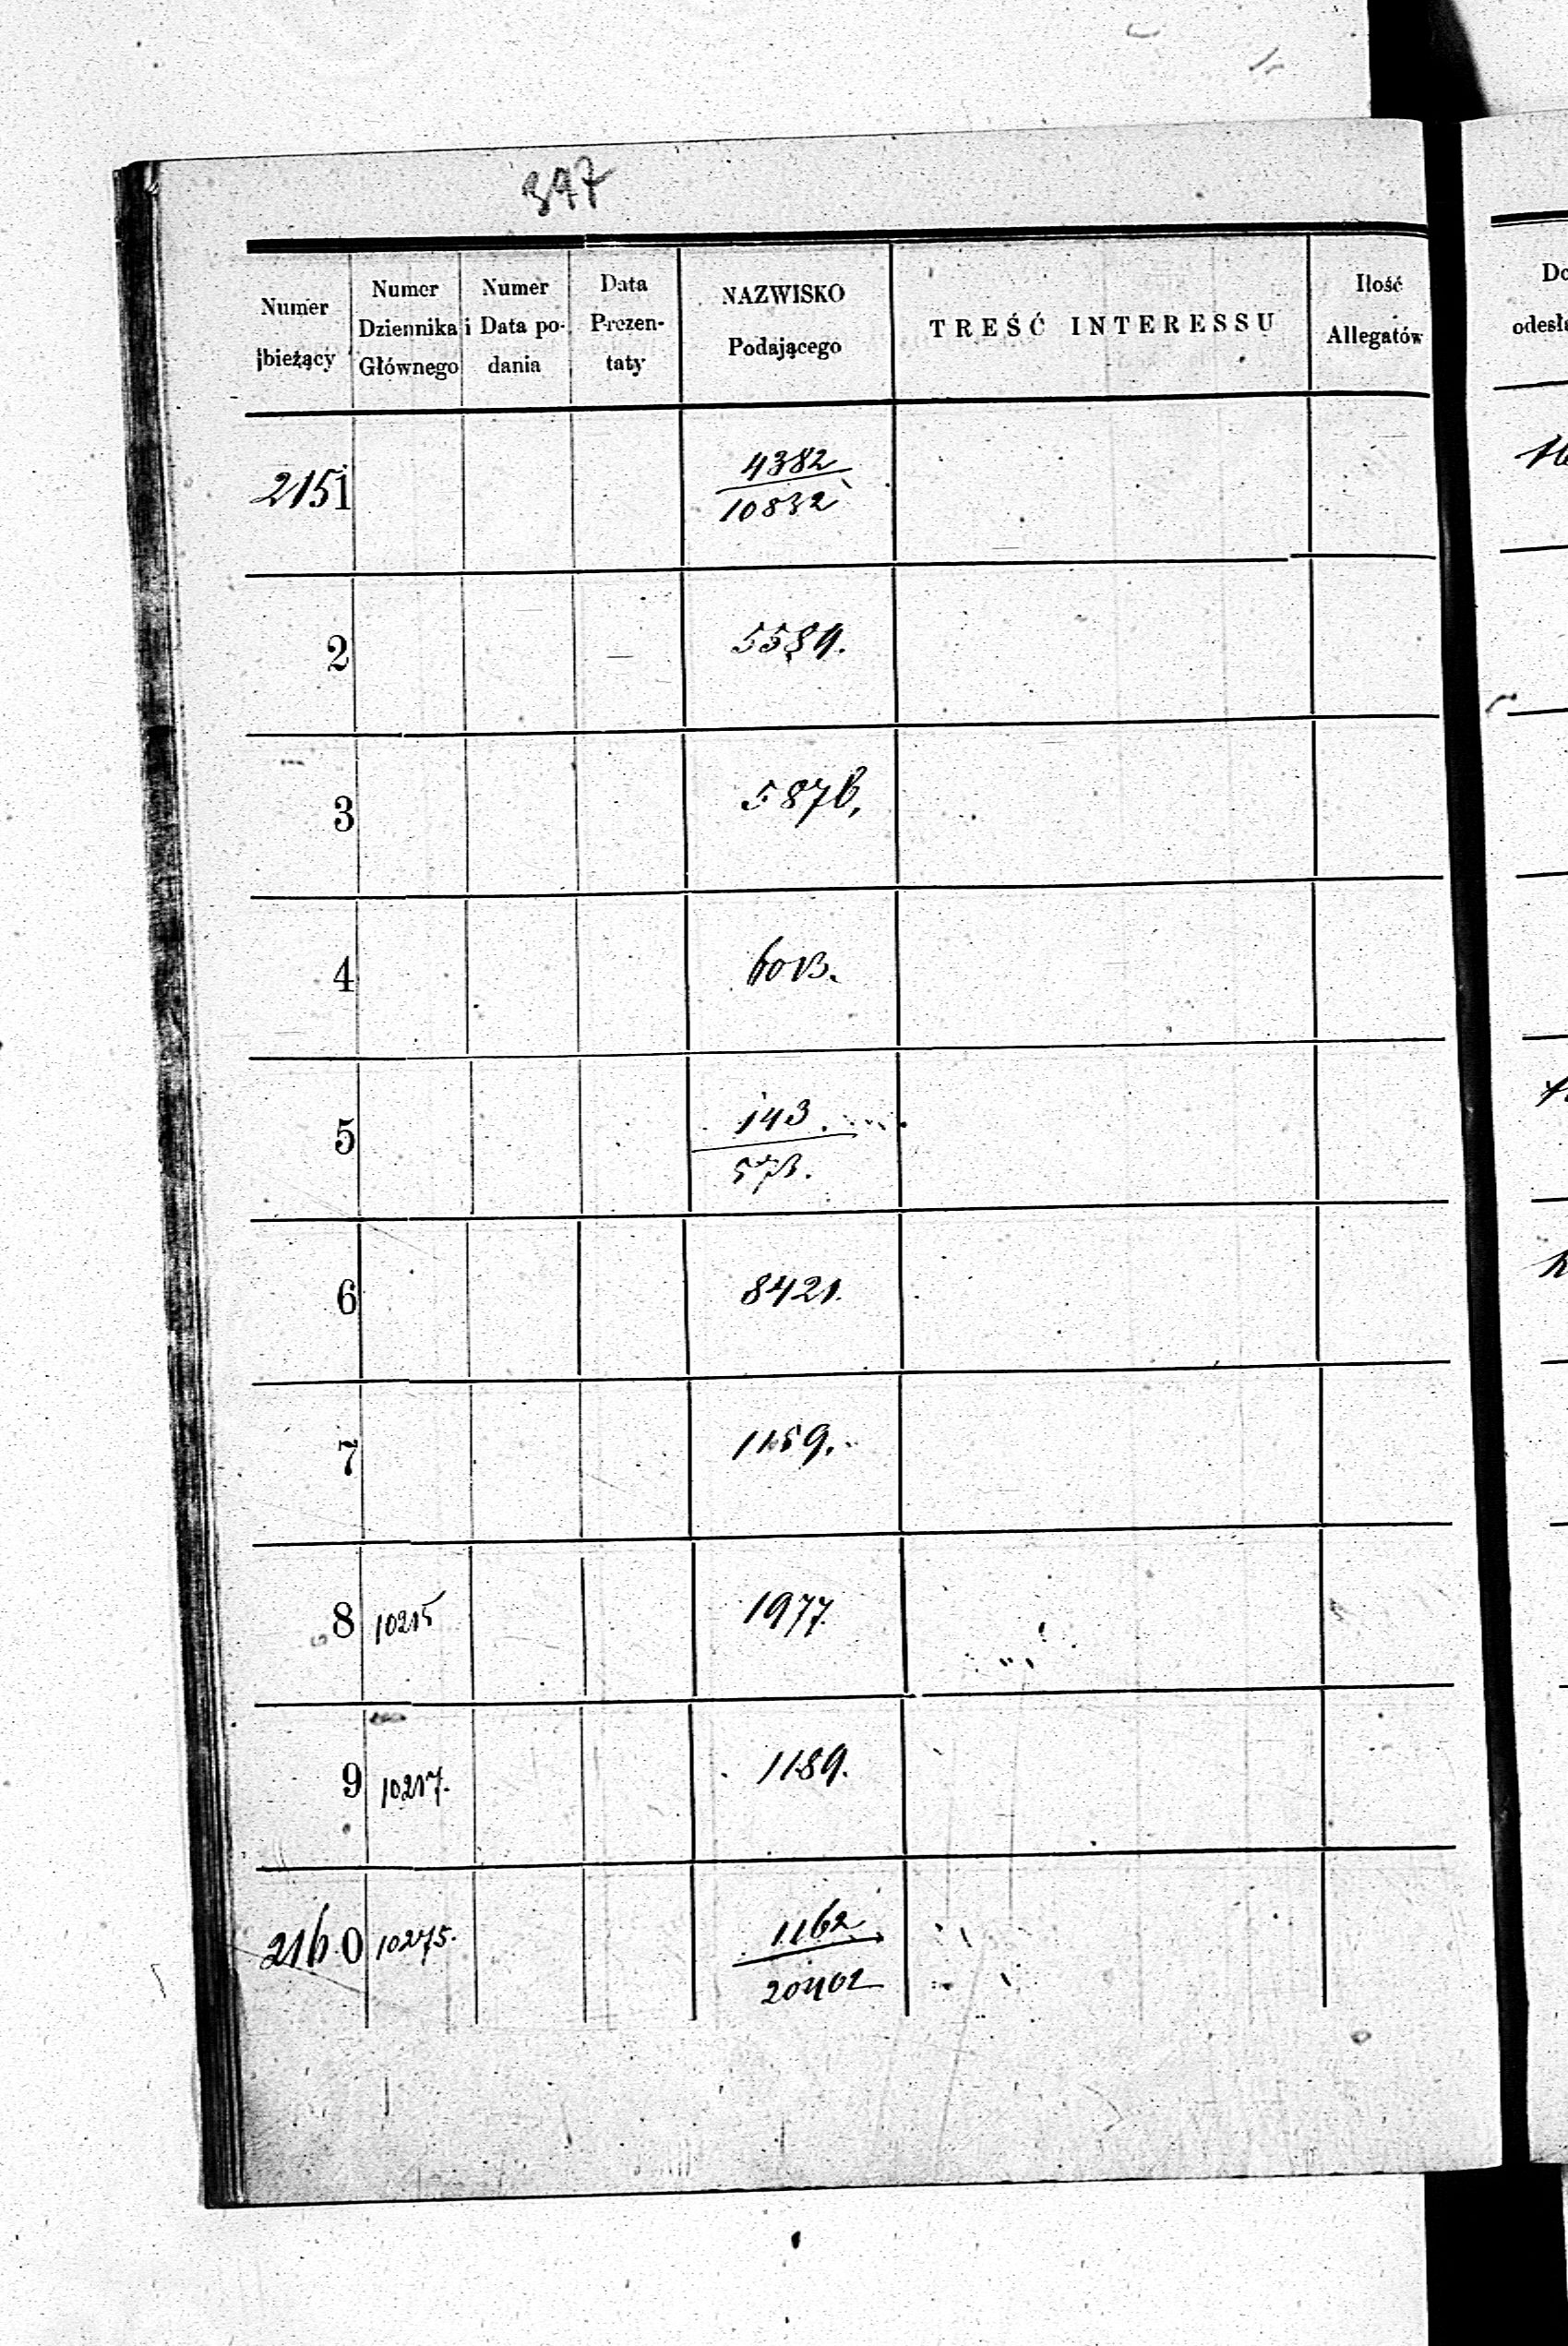 347
Numer bieżący
Numer Dziennika Głównego
Numer i Data podania
Data Prezentaty
NAZWISKO Podającego
TREŚĆ INTERESSU
Ilość Allegatów
2151 4382
10832
2 5589.
3 5876,
4 6013.
5 143.
573.
6 8421.
7 1159.
8 10215 1977
9 10217. 1189.
2160 10275. 1162
20402